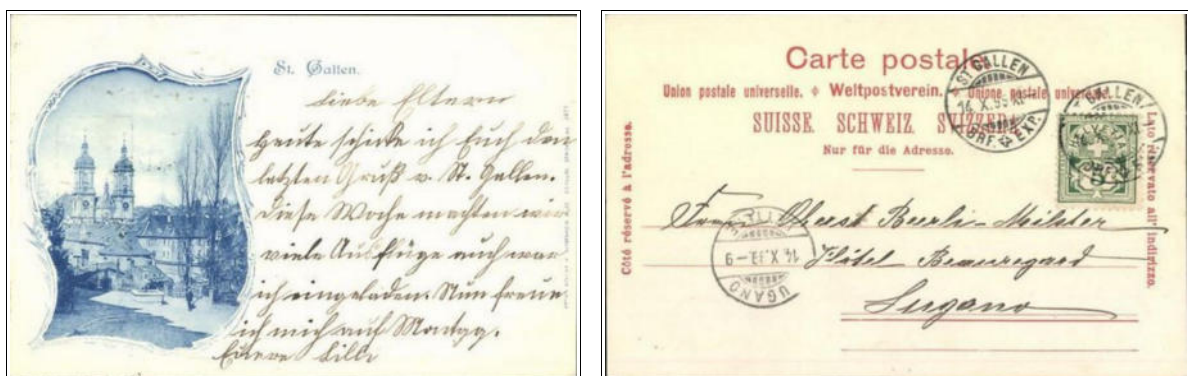 St. Gallen.
Liebe Eltern
heute schicke ich Euch den
letzten Gruß v. St. Gallen.
Diese Woche machten wir
viele Ausflüge auch war
ich eingeladen. Nun freue
ich mich auf Montag.
Euere Lilli
Carte postale
Union postale universelle. Weltpostverein. Unione postale universale.
SUISSE. SCHWEIZ. SVIZZERA.
Nur für die Adresse.
Côté réservé à l'adresse.
Lato riservato all' indirizzo.
ST GALLEN
14. X. 99. XI
BRF. EXP.
ST GALLEN
HELVETIA
5
Oberst Buerli-Milster
Hôtel Beauregard
Lugano
14. X. 99. - 9
LUGANO